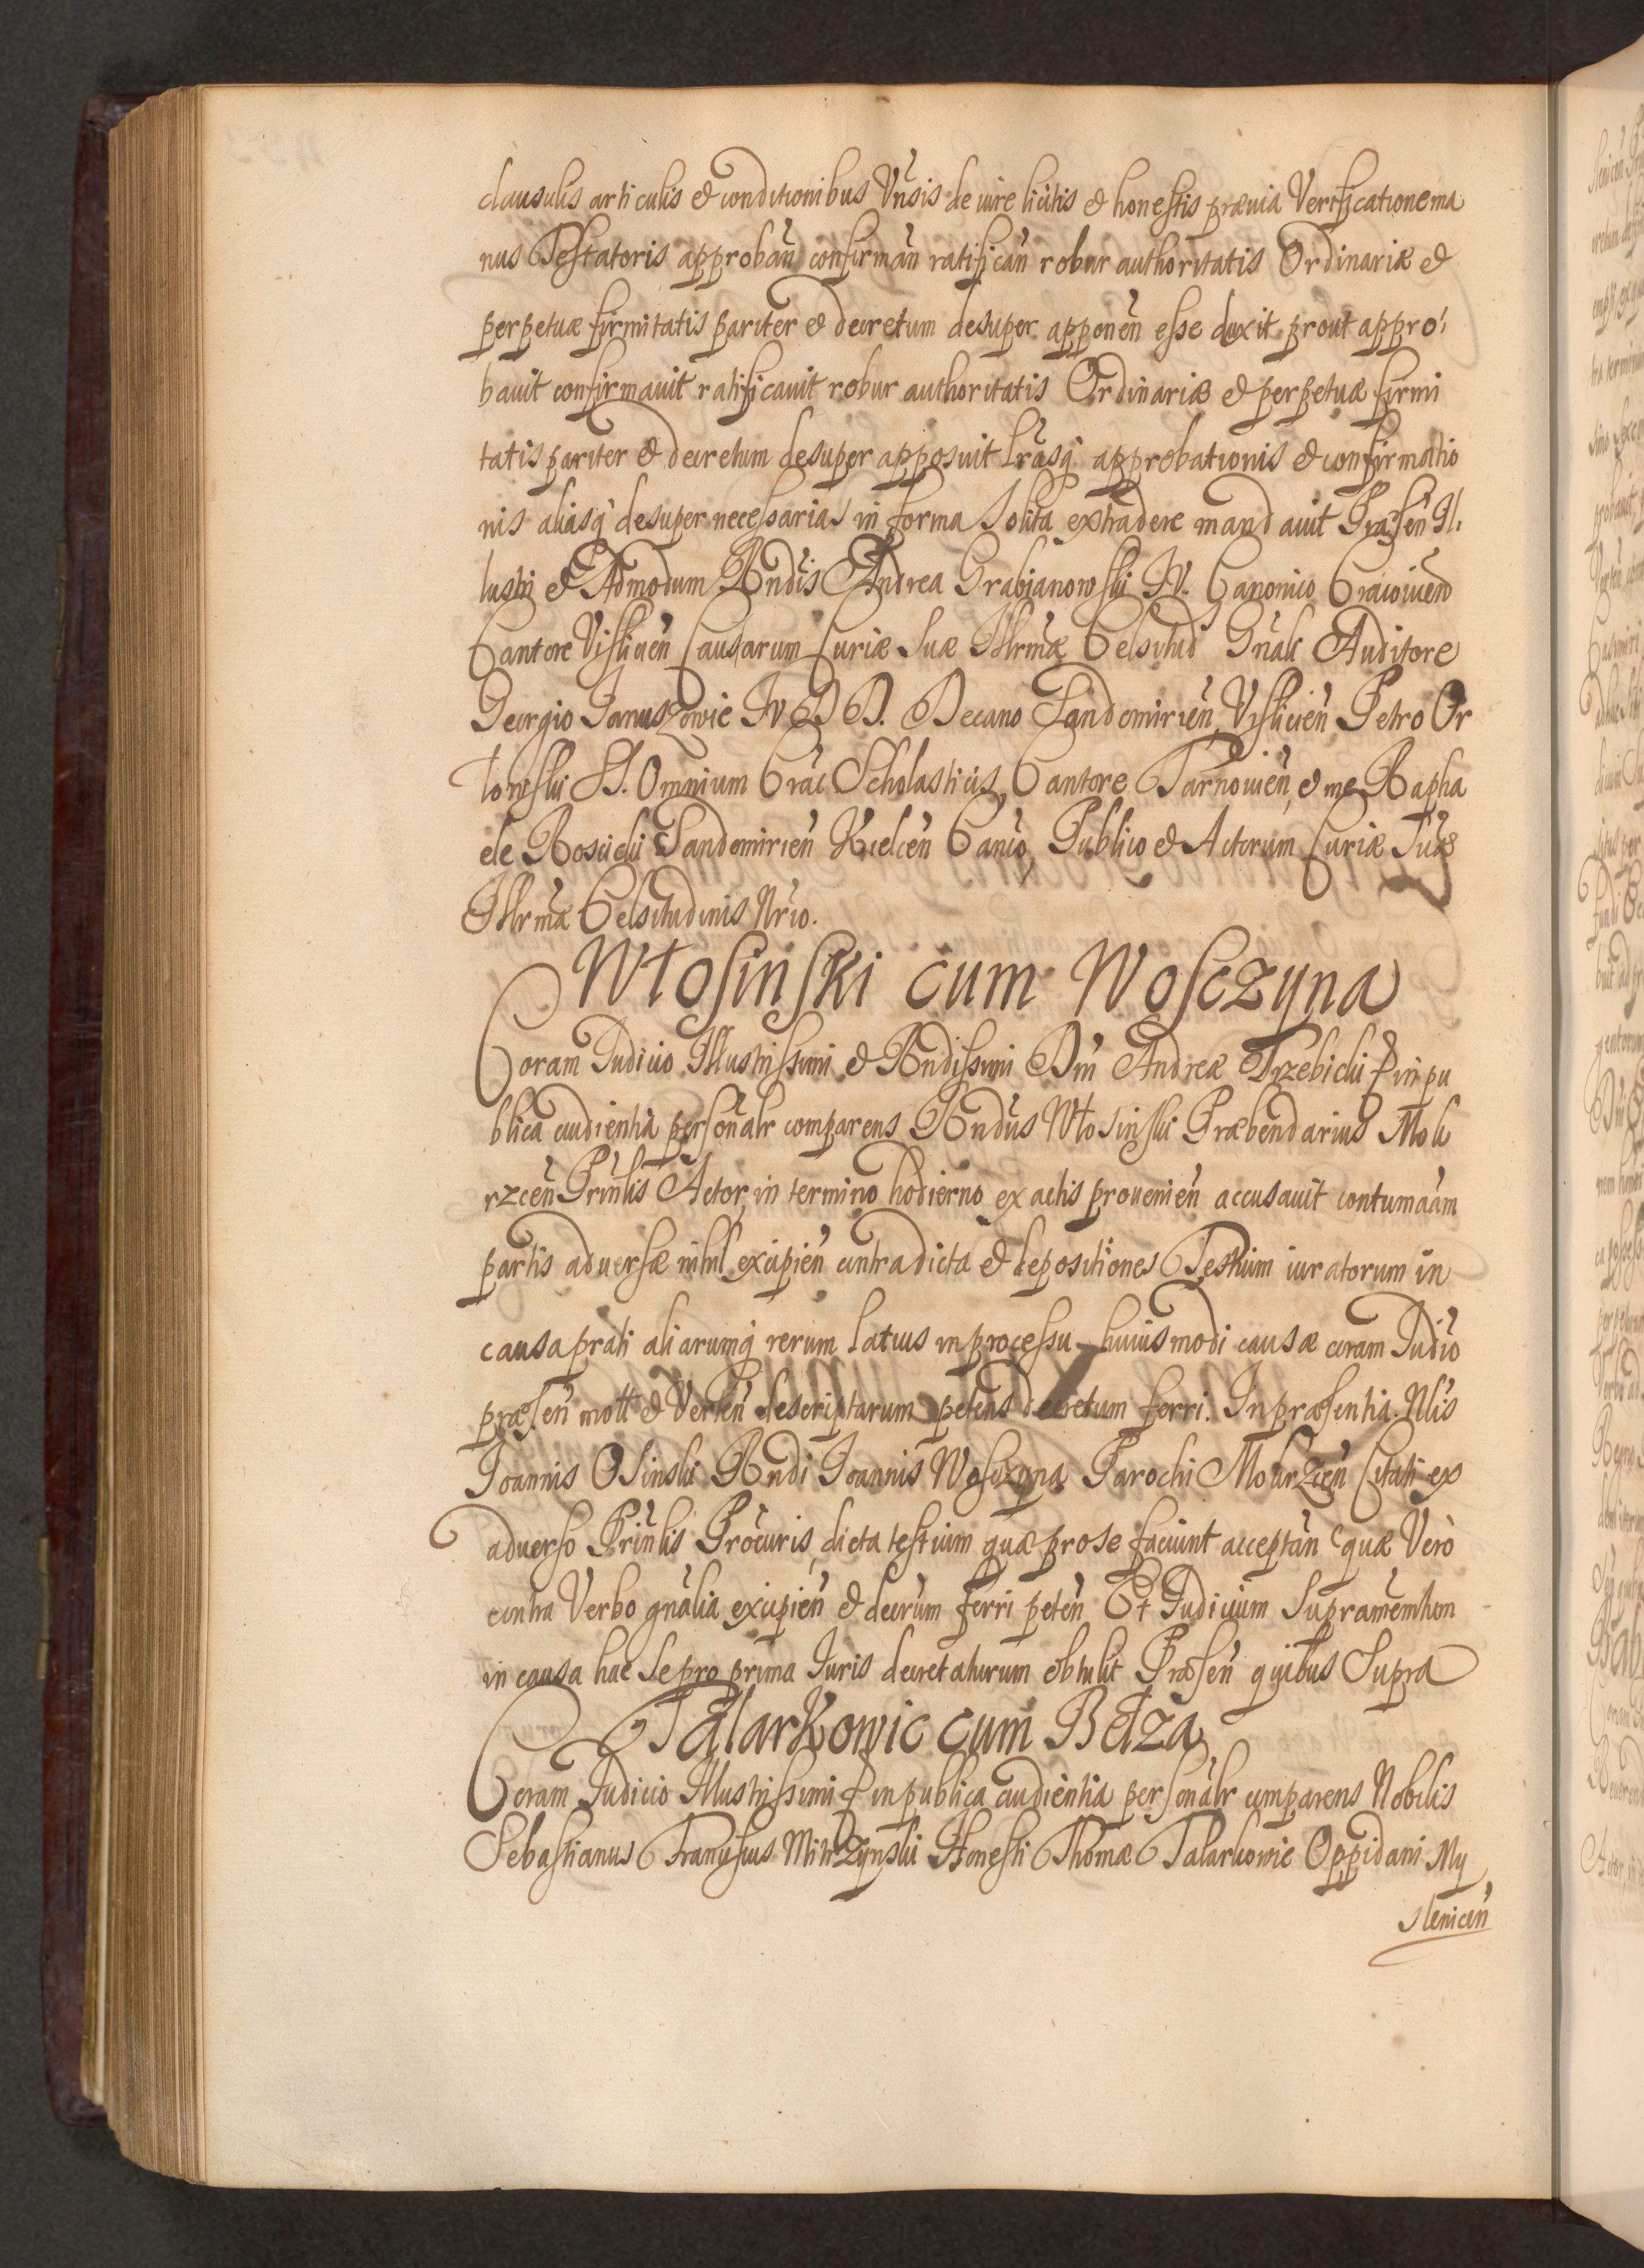 clausulis articulis et conditionibus Vnsis de iure licitis et honestis præuia Verificatione ma
nus Testatoris approban̄ confirman̄ ratifican̄ robur authoritatis Ordinariæ et
perpetuæ firmitatis pariter et decretum desuper apponen̄ esse duxit prout appro
bauit confirmauit ratificauit robur authoritatis Ordinariæ et perpetuæ firmi
tatis pariter et decretum desuper apposuit Lrāsq approbationis et confirmatio
nis aliasq desuper necessarias in forma solita extradere mandauit Præsen̄ Il:
lustri et Admodum Rndis Andrea Grabianowski IV. Canonico Cracouien
Cantore Visliuen̄ Causarum Curiæ Suæ Illrmæ Celsitud Gnāli Auditore
Georgio Januszowic IVDD. Decano Sandomirien̄, Vislicien̄ Petro Or
łowski SS. Omnium Crāc Scholasticis, Cantore Tarnouien̄, et me Rapha
ele Roscicki Sandomirien̄ Kielcen̄ Canco, Publico et Actorum Curiæ Suæ
Illrmæ Celsitudinis Nrio.
Włosinski cum Wosczyna
Coram Judicio Illustrissimi et Rndissimi Dni Andreæ Trzebicki & in pu
blica audientia personalr comparens Rndus Włosinski Præbendarius Mok
rzcen̄ Prinlis Actor, in termino hodierno ex actis prouenien̄ accusauit contumaām
partis aduersæ nihil excipien̄ contra dicta et depositiones Testium iuratorum in
causa prati aliarumq rerum latius in processu huiusmodi causæ coram Judio
præsen̄ mott et Verten̄ descriptarum petens decretum ferri. In præsentia Nlis
Joannis Osinski Rndi Joannis Wosczyna Parochi Mokrzcen̄ Citati ex
aduerso Prinlis Procuris, dicta testium quæ pro se faciunt acceptan̄ quæ Verò
contra Verbo gnālia excipien̄ et decrum ferri peten̄ Et Judicium Supramēntum
in causa hac se pro prima Juris decretaturum obtulit Præsen̄ quibus Supra
Talarkowic cum Bełza
Coram Judicio Illustrissimi & in publica audientia personalr comparens Nobilis
Sebastianus Franciscus Honesti Thomæ Talarkowic Oppidani My
slenicen̄